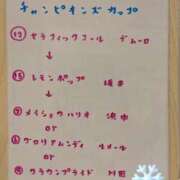 チャンピオンズカップ
⑫ セラフィックコール デムーロ
↓
⑮ レモンポップ 坂井
↓
⑦ メイショウハリオ 浜中
or
⑥ グロリアムンディ ルメール
or
クラウンプライド 川田